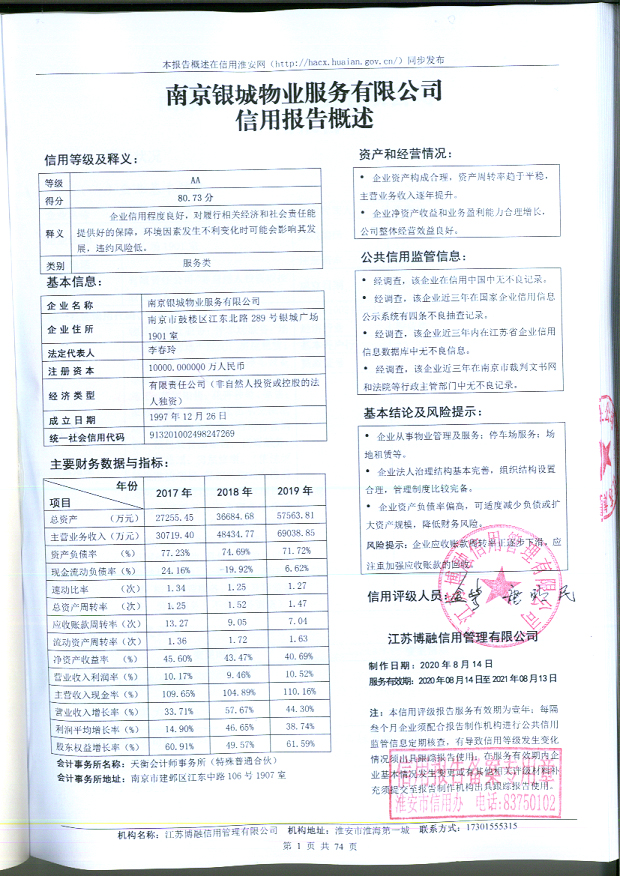 本报告概述在信用淮安网（http://hacx.huaian.gov.cn/）同步发布
南京银城物业服务有限公司
信用报告概述
信用等级及释义：
等级 AA
得分 80.73分
释义 企业信用程度良好，对履行相关经济和社会责任能
提供好的保障，环境因素发生不利变化时可能会影响其发
展，违约风险低。
类别 服务类
基本信息：
企业名称 南京银城物业服务有限公司
企业住所 南京市鼓楼区江东北路289号银城广场
1901室
法定代表人 李春玲
注册资本 10000.000000万人民币
经济类型 有限责任公司（非自然人投资或控股的法
人独资）
成立日期 1997年12月26日
统一社会信用代码 913201002498247269
主要财务数据与指标：
年份
项目 2017年 2018年 2019年
总资产 （万元） 27255.45 36684.68 57563.81
主营业务收入（万元） 30719.40 48434.77 69038.85
资产负债率 （%） 77.23% 74.69% 71.72%
现金流动负债率（%） 24.16% -19.92% 6.62%
速动比率 （次） 1.34 1.25 1.27
总资产周转率 （次） 1.25 1.52 1.47
应收账款周转率（次） 13.27 9.05 7.04
流动资产周转率（次） 1.36 1.72 1.63
净资产收益率 （%） 45.60% 43.47% 40.69%
营业收入利润率（%） 10.17% 9.46% 10.52%
主营收入现金率（%） 109.65% 104.89% 110.16%
营业收入增长率（%） 33.71% 57.67% 44.30%
利润平均增长率（%） 14.90% 46.65% 38.74%
股东权益增长率（%） 60.91% 49.57% 61.59%
会计事务所名称：天衡会计师事务所（特殊普通合伙）
会计事务所地址：南京市建邺区江东中路106号1907室
资产和经营情况：
• 企业资产构成合理，资产周转率趋于平稳，
主营业务收入逐年提升。
• 企业净资产收益和业务盈利能力合理增长，
公司整体经营效益良好。
公共信用监管信息：
• 经调查，该企业在信用中国中无不良记录。
• 经调查，该企业近三年在国家企业信用信息
公示系统有四条不良抽查记录。
• 经调查，该企业近三年内在江苏省企业信用
信息数据库中无不良信息。
• 经调查，该企业近三年在南京市裁判文书网
和法院等行政主管部门中无不良记录。
基本结论及风险提示：
• 企业从事物业管理及服务；停车场服务；场
地租赁等。
• 企业法人治理结构基本完善，组织结构设置
合理，管理制度比较完备。
• 企业资产负债率偏高，可适度减少负债或扩
大资产规模，降低财务风险。
风险提示：企业应收账款周转率正逐步下滑，应
注重加强应收账款的回收。
信用评级人员：
江苏博融信用管理有限公司
江苏博融信用管理有限公司
制作日期：2020年8月14日
服务有效期：2020年08月14日至2021年08月13日
注：本信用评级报告服务有效期为壹年；每隔
叁个月企业须配合报告制作机构进行公共信用
监管信息定期核查，有导致信用等级发生变化
情况须出具跟踪报告使用。在服务有效期内企
业基本情况发生变更或有其他相关评级材料补
充须提交至报告制作机构出具跟踪报告使用。
信用报告备案专用章
淮安市信用办 电话:83750102
机构名称：江苏博融信用管理有限公司 机构地址：淮安市淮海第一城 联系方式：17301555315
第 1 页 共 74 页